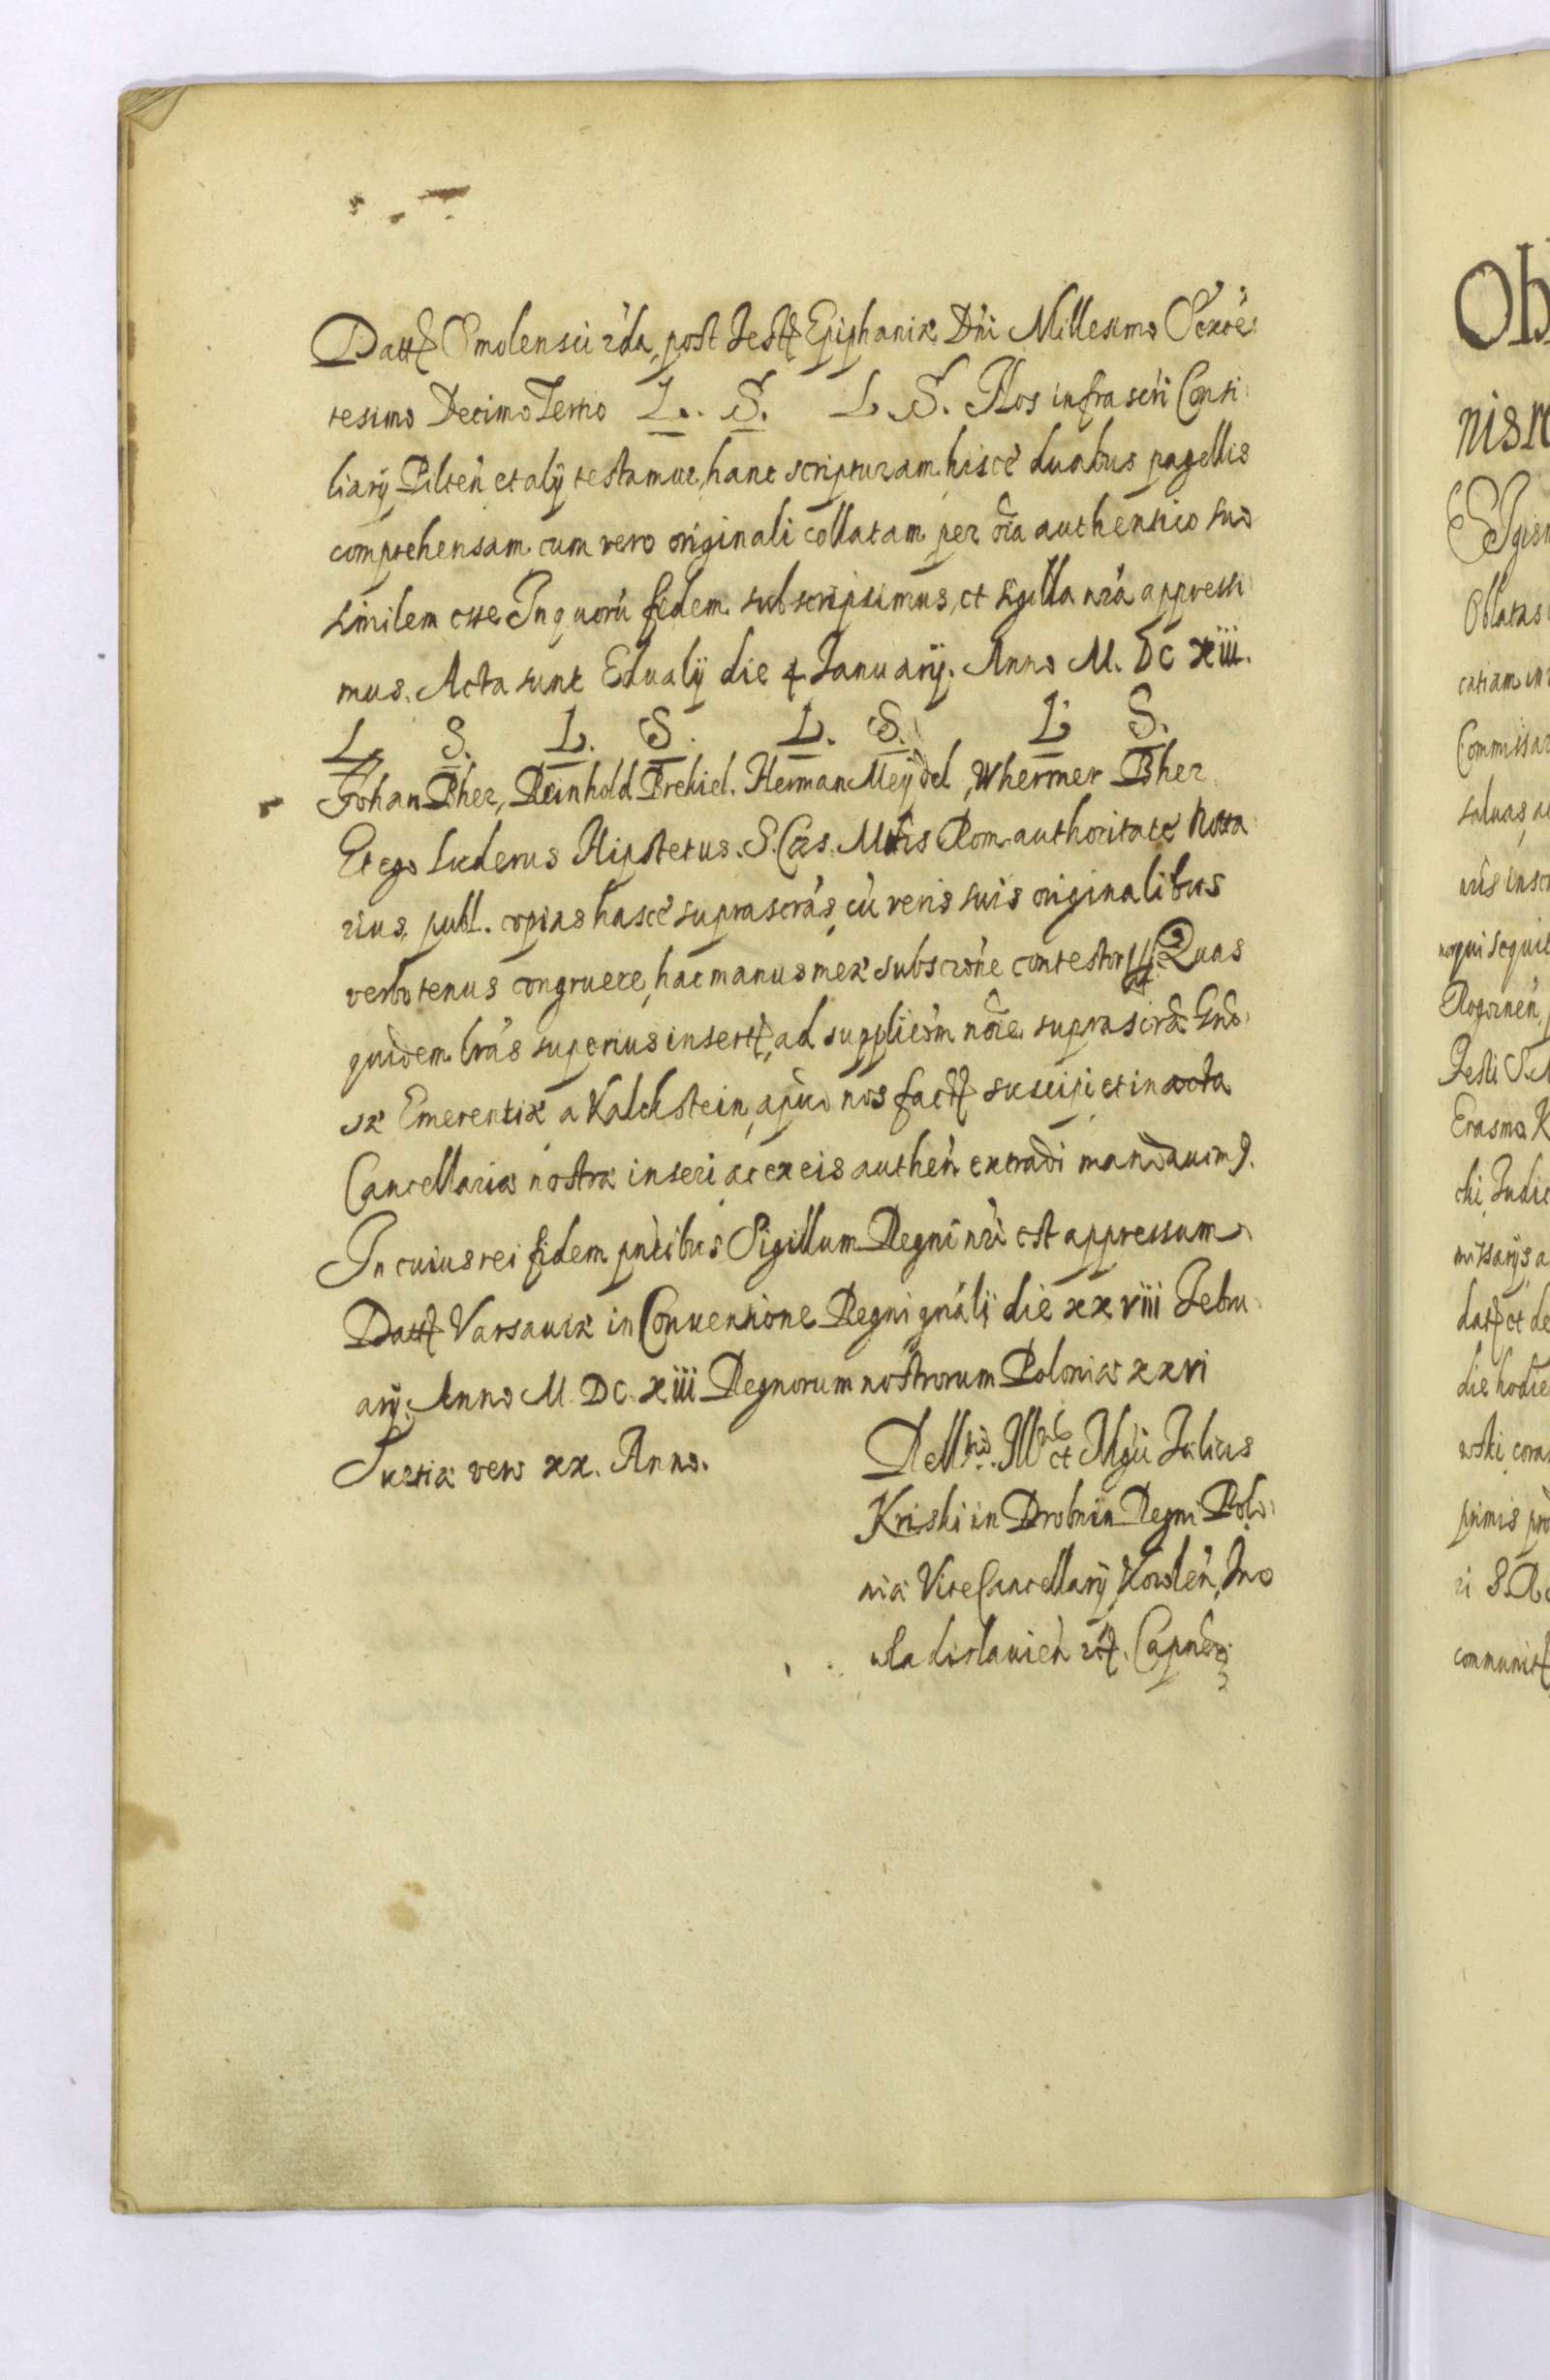 Datt Smolensci 2da, post Festt Epiphaniæ Dni Millesimo Sexce:
tesimo Decimo Tertio L. S. L. S. Nos infrascri Consi:
liarij Pilten et alij testamur, hanc scripturam hisce duabus pagellis
comprehensam cum vero originali collatam per oia authentico suo
similem esse In quorũ fidem subscripsimus, et sigilla nrã appressi
mus. Acta sunt Edualij die 4 Ianuarij. Anno M. DC xiii.
L. S. L. S. L. S. L S.
Johan Bher, Reinhold Brekiel. Herman Meÿdel, Whermer Bher
Et ego Luderus Hipstetus. S. Cæs. Mttis Rom. authoritate Nota
rius publ. copias hasce suprascras, cũ veris suis originalibus
verbotenus congruere, hac manus meæ subscrone contestor Quas
quidem lras superius insertt, ad supplicõm noie suprascra Gnõ:
sæ Emerentiæ a Kalckstein, apud nos factt suscipi et in acta
Cancellariæ nostræ inseri ac ex eis authen extradi mandauim9.
In cuius rei fidem pñtibus Sigillum Regni nri est appressum
Datt Varsauiæ in Conuentione Regni gnalj die xxviii Febru
arij. Anno M. DC. xiii Regnorum nostrorum Poloniæ xxvi
Suetiæ vero xx. Anno.
Rello Illris et Mgci Fælicis
Kriski in Drobnin Regni Polo:
niæ ViceCancellarij, Kowlen, Ino
wladislauien ett. Capnei
Ob
nis
Oblatas
Commissar
saluas,
Erasmo K
chi Judic
missarijs a
dat et de
die hodie
primis
communit